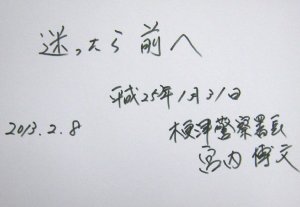 迷ったら前へ
平成25年1月31日
2013.2.8
根津警察署長
宮内博文